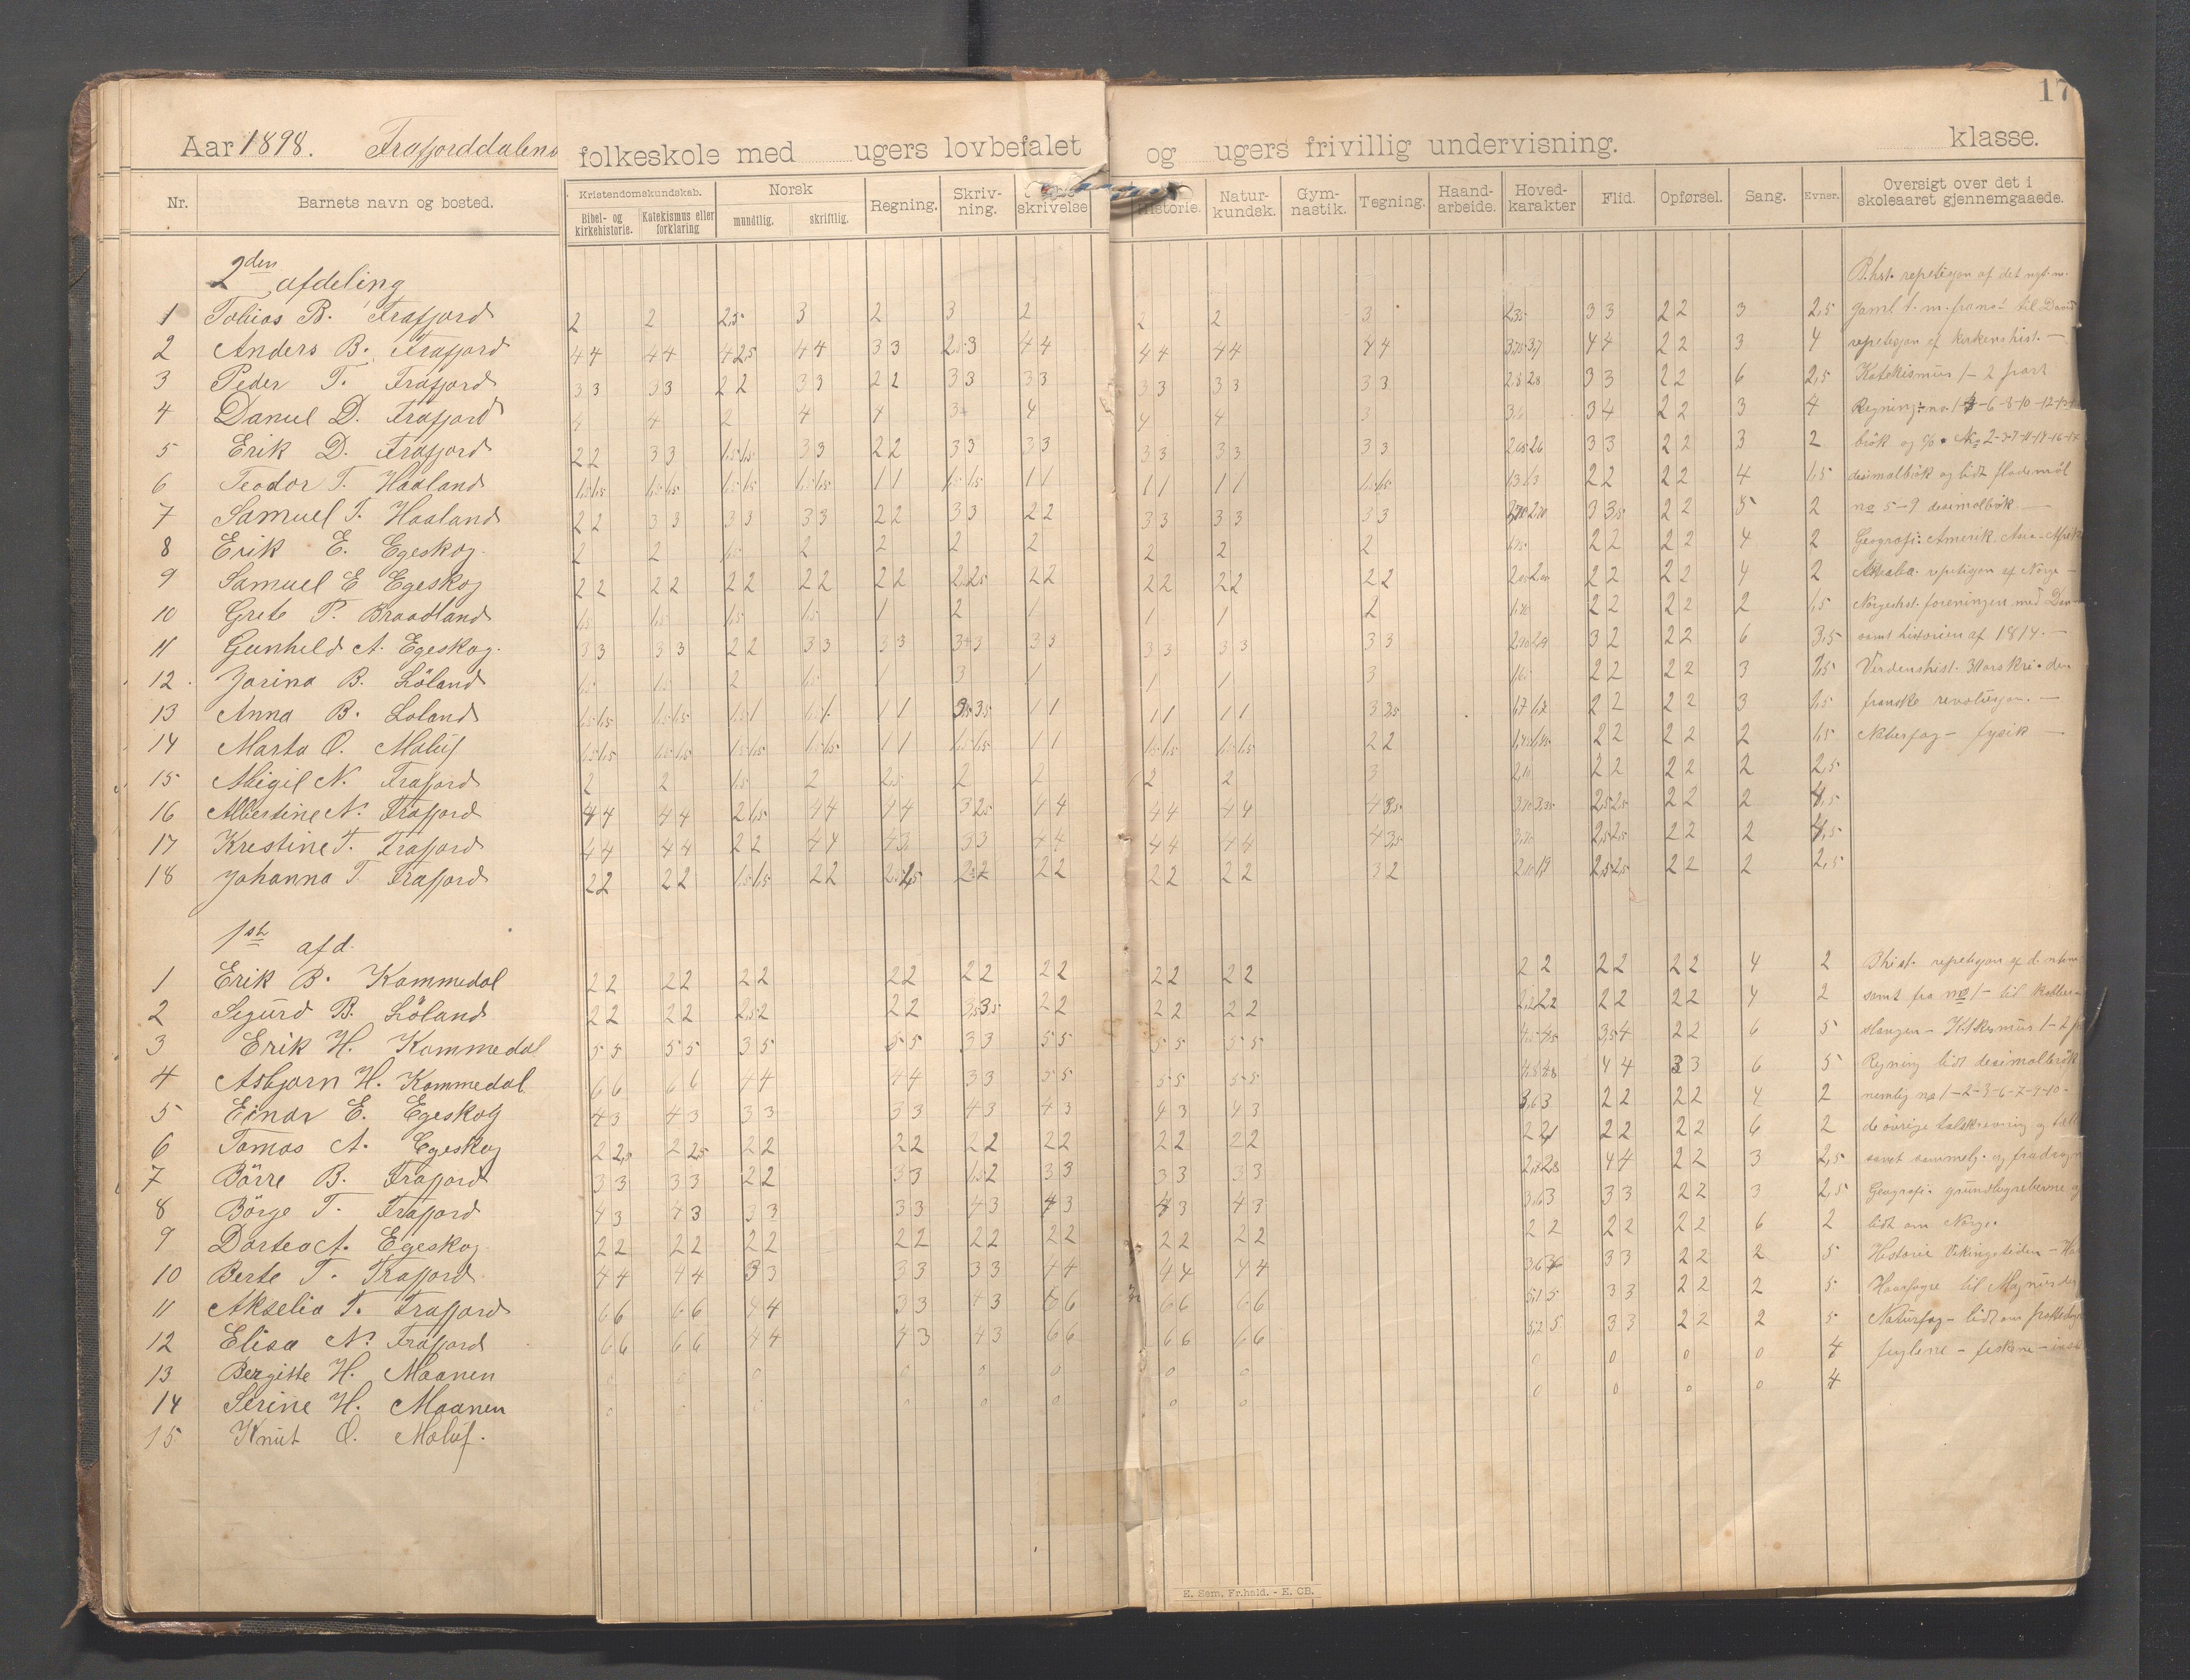 17
Aar 1898. Trafjorddalens folkeskole med ugers lovbefalet og ugers frivillig undervisning. klasse.
Nr. Barnets navn og bosted. Kristendomskundskab. Bibel- og kirkehistorie. Katekismus eller forklaring Norsk mundtlig. skriftlig. Regning. Skriv-ning. skrivelse Historie. Natur-kundsk. Gym-nastik. Tegning. Haand-arbeide. Hoved-karakter Flid. Opførsel. Sang. Evner. Oversigt over det i skoleaaret gjennemgaaede.
2den afdeling
1 Tobias B. Frafjord 2 2 2,5 3 2 3 2 2 2 3 2,35 3 3 2 2 3 2,5
2 Anders B. Frafjord 4 4 4 4 4 2,5 4 4 3 3 2,5 3 4 4 4 4 4 4 4 4 3,75 3,7 4 4 2 2 3 4 repetisjon af kirkenshist. —
3 Peder T. Frafjord 3 3 3 3 2 2 3 3 2 2 3 3 3 3 3 3 3 3 3 3 2,8 2,8 3 3 2 2 6 2,5 Katekismus 1 - 2 part
4 Daniel D. Frafjord 4 4 2 4 4 3 4 4 4 3 3,6 3 4 2 2 3 4
5 Erik D. Frafjord 2 2 3 3 1,5 1,5 3 3 2 2 3 3 3 3 3 3 3 3 3 3 2,65 2,6 3 3 2 2 3 2
6 Teodor T. Haaland 1,5 1,5 1,5 1,5 1,5 1,5 1,5 1,5 1 1 1,5 1,5 1 1 1 1 1 1 1,5 1,5 1,3 1,3 2 2 2 2 4 1,5 desimalbrök og lidt flademål
7 Samuel T. Haaland 2 2 3 3 3 3 3 3 2 2 3 3 2 2 3 3 3 3 3 3 2,70 3 3,5 2 2 5 2 no 5-9 desimalbrök —
8 Erik E. Egeskog. 2 2 1,5 2 2 2 2 2 2 2 1,95 2 2 2 2 4 2 Geografi: Amerik. Asia - Afrik
9 Samuel E Egeskog 2 2 2 2 2 2 2 2 2 2 2 2,5 2 2 2 2 2 2 2 2 2 2 2 2 4 2 repetisjon af Norge —
10 Grete P. Braadland 1,5 1,5 1,5 1,5 1 2 1 1 1 2 2 2 2 2 2 1,5 Norgeshist. foreningen med Dan
11 Gunhild A. Egeskog. 3 3 3 3 2 2 3 3 3 3 3 3 3 3 3 3 3 3 3 3 3 2 2 2 6 3,5 samt historien af 1814. —
12 Jorina B. Löland 1,5 1,5 2 1,5 1 3 1 1 1 3 1,65 2 2 2 2 3 1,5 Verdenshist. 30 aarskri. den
13 Anna B. Loland 1,5 1,5 1,5 1,5 1,5 1 1,5 1 1 1 3,5 3,5 1 1 1 1 1 1 3 3,5 1,7 1,7 2 2 2 2 3 1,5 franske revolusjon. —
14 Marta O. Moluf 1,5 1,5 1,5 1,5 1,5 1,5 1,5 1,5 1 1 1,5 1,5 1 1 1,5 1,5 1,5 1,5 2 2 1,45 1,45 2 2 2 2 2 1,5 Naturfag - fysik —
15 Abigil N. Frafjord 2 2 1,5 2 2,5 2 2 2 2 3 2,10 2 2 2 2 2 2,5
16 Albertine N. Frafjord 4 4 4 4 2 1,5 4 4 4 4 3 2,5 4 4 4 4 4 4 4 3,5 2,5 2,5 2 2 2 4,5
17 Kristine T. Frafjord 4 4 4 4 2 2 4 4 4 3 3 3 4 4 4 4 4 4 4 3,5 2,5 2,5 2 2 2 4,5
18 Johanna T. Frafjord 2 2 2 2 1,5 1,5 2 2 2 2 2 2 2 2 2 2 2 3 2 2,5 2,5 2 2 2 2,5
1ste afd.
1 Erik B. Kommedal 2 2 2 2 2 2 2 2 2 2 2 2 2 2 2 2 2 2 2 2 2 2 4 2 Bhist. repetisjon af
2 Sigurd B. Löland 2 2 2 2 2,5 2 2 2 3,5 3,5 2 2 2 2 2 2 2,2 2,2 2 2 2 2 4 2 samt fra no 1 - til
3 Erik H. Kommedal 5 5 5 5 3 5 5 5 3 3 5 5 5 5 5 5 4,5 4,5 3,5 4 2 2 6 5
4 Asbjørn H. Kommedal 6 6 6 6 4 4 4 4 3 3 5 5 5 5 5 5 4,5 4,8 4 4 3 3 6 5 Regning lidt desimalbrök
5 Einar E. Egeskog 4 3 4 3 3 3 3 3 4 3 4 3 4 3 4 3 3,6 3 2 2 2 2 4 2 nemlig no 1-2-3-6-7-9-10-
6 Tomas A. Egeskog 2 2,5 2 2,5 2 2 2 2 2 2 2 2 2 2 2 2 2 2,1 2 2 2 2 6 2
7 Börre B. Frafjord 3 3 3 3 2 2 3 3 1,5 2 3 3 3 3 3 3 2,8 2,8 4 4 2 2 3 2,5
8 Börge T. Frafjord 4 3 4 3 3 3 3 3 4 3 4 3 4 3 4 3 3,6 3 3 3 2 2 3 2,5 Geografi. grundbegreberne og
9 Dortea A. Egeskog 2 2 2 2 2 2 2 2 2 2 2 2 2 2 2 2 2 2 2 2 2 2 6 2 lidt om Norge.
10 Berte T. Frafjord 4 4 4 4 3 3 3 3 3 3 4 4 4 4 4 4 3,6 3,6 3 3 2 2 2 5 Historie Vikingetiden - Har
11 Akselia T. Frafjord 6 6 6 6 4 4 3 3 4 3 6 6 6 6 6 6 5,1 5 3 3 2 2 2 5 Haarfagre til Magnus
12 Elisa N. Frafjord 6 6 6 6 4 4 4 3 4 3 6 6 6 6 6 6 5,2 5 3 3 2 2 2 5 Naturfag - lidt om
13 Bergitte H. Maanen 0 0 0 0 0 0 0 0 0 0 0 0 4 fuglene - fiskene - inse
14 Serine H. Maanen 0 0 0 0 0 0 0 0 0 0 0 0 4
15 Knut O. Moluf.
E. Sem. Fr.hald. - E. CB.